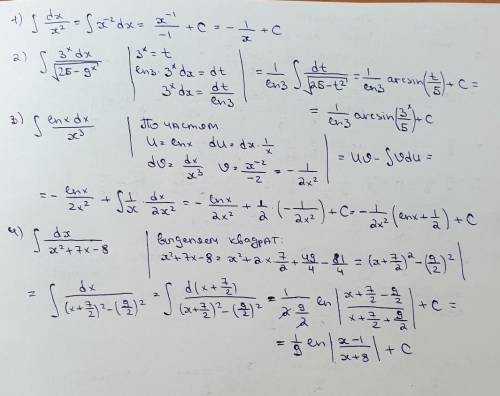 1) ∫ dx/x² = ∫ x⁻² dx = x⁻¹/-1 + C = - 1/x + C
2) ∫ 3ˣ dx/√(25-9ˣ) | 3ˣ = t
ln3 · 3ˣ dx = dt
3ˣ dx = dt/ln3 | = 1/ln3 ∫ dt/√(25-t²) = 1/ln3 arcsin(t/5) + C =
= 1/ln3 arcsin(3ˣ/5) + C
3) ∫ lnx dx/x³ | По частям
U = lnx dU = dx · 1/x
dV = dx/x³ V = x⁻²/-2 = - 1/2x² | = UV - ∫VdU =
= - lnx/2x² + ∫ 1/x dx/2x² = - lnx/2x² + 1/2 · (- 1/2x²) + C = - 1/2x² (lnx + 1/2) + C
4) ∫ dx/x²+7x-8 | Выделяем квадрат:
x²+7x-8 = x² + 2 × 7/2 + 49/4 - 81/4 = (x + 7/2)² - (9/2)² |
= ∫ dx/(x+7/2)² - (9/2)² = ∫ d(x+7/2)/(x+7/2)² - (9/2)² = 1/2·9/2 ln |x+7/2-9/2 / x+7/2+9/2| + C =
= 1/9 ln |x-1/x+8| + C